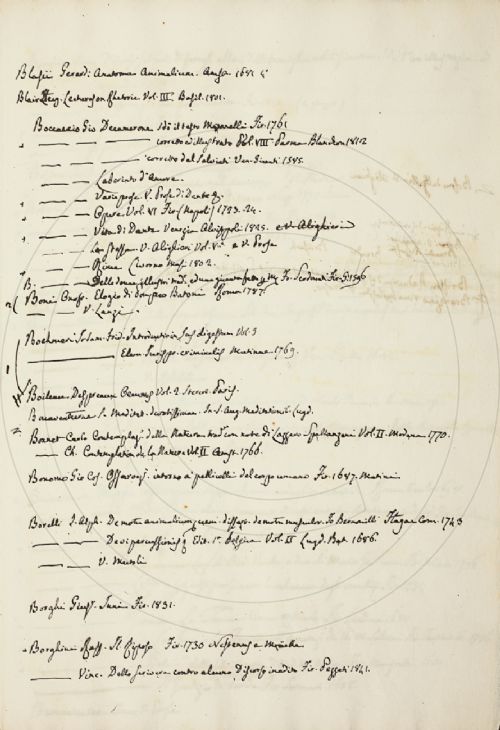 Blasii Gerardi Anatome Animalium. Amst. 1681 4°
Blair Lectures on Rhetoric Vol. III. Basil. 1801.
Boccaccio Gio Decamerone Fir. 1761
— — — corretto ed illustrato Vol. VIII Parma Blanchon 1812
— — — corretto dal Salviati Ven. Giunti 1585.
— — Laberinto d'Amore.
— — Varie prose V. Prose di Dante
— — Opere Vol. VI Fir. (Napoli) 1723. 24.
— — Vita di Dante Venezia Alvisopoli 1825. e V. Alighieri
— — V. Alighieri Vol. V. e V. Prose
— — Rime Livorno Masi 1802.
B. — — Delle donne illustri Fir. 1596
Boni Onof. Elogio di Pompeo Batoni Roma 1787.
— — V. Lanzi
Boehmeri Introductio in Jus digestorum Vol. 2
— — Elem. Jurispr. criminalis Mutinae 1769.
Boileau Despreaux Oeuvres Vol. 2 Paris.
Bonaventurae S. Meditat. devotissimae S. Aug. Meditationib. Lugd.
Bonnet Carlo Contemplaz. della Natura trad. con note di Lazzaro Spallanzani Vol. II. Modena 1770.
— Ch. Contemplation de la Nature Vol. II Amst. 1766.
Bonomo Gio Cos. Osservaz. intorno a' pellicelli del corpo umano Fir. 1687.
Borelli J. Alph. De motu animalium Jo Bernoulli Hagae Com. 1743
— — De vi percussionis Vol. II Lugd. Bat. 1686
— — V.
Borghi Gius. Inni Fir. 1831.
Borghini Raff. Il Riposo Fir. 1730 Nestenus e Moücke
— — Vinc. Dello scrivere contro alcuno, Discorso inedito Fir. Pezzati 1841.